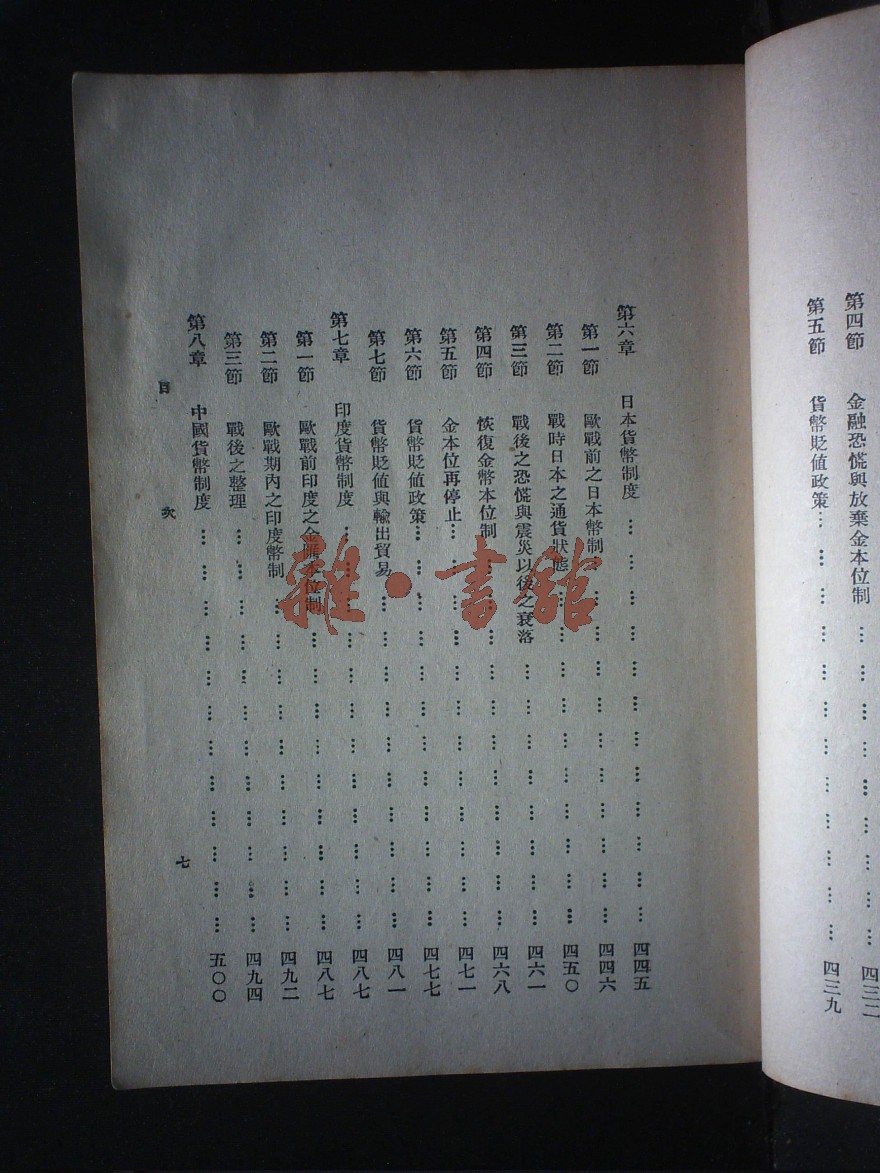 第四節 金融恐慌與放棄金本位制……………………………四三二
第五節 貨幣貶值政策……………………………四三九
第六章 日本貨幣制度……………………………四四五
第一節 歐戰前之日本幣制……………………………四四六
第二節 戰時日本之通貨狀態……………………………四五〇
第三節 戰後之恐慌與震災以後之衰落……………………………四六一
第四節 恢復金幣本位制……………………………四六八
第五節 金本位再停止……………………………四七一
第六節 貨幣貶值政策……………………………四七七
第七節 貨幣貶值與輸出貿易……………………………四八一
第七章 印度貨幣制度……………………………四八七
第一節 歐戰前印度之金匯本位制……………………………四八七
第二節 歐戰期內之印度幣制……………………………四九二
第三節 戰後之整理……………………………四九四
第八章 中國貨幣制度……………………………五〇〇
目次 七
雜·書館